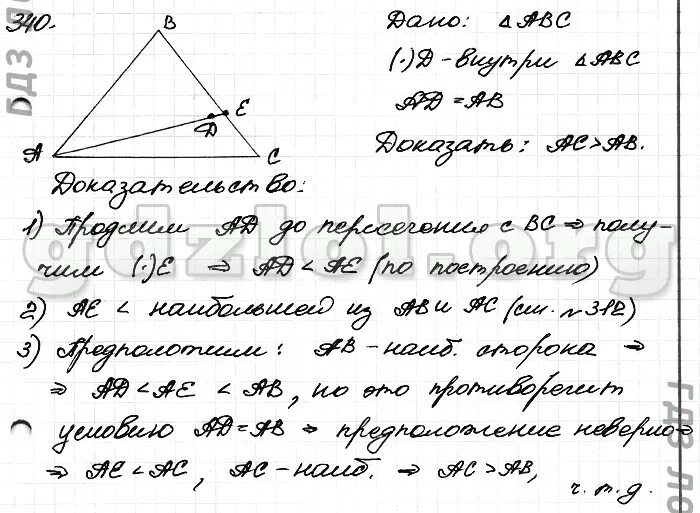 340.
B
A
D
E
C
Дано: △ABC
(·)D - внутри △ABC
AD = AB
Доказать: AC > AB.
Доказательство:
1) Продлим AD до пересечения с BC ⇒ полу-
чим (·)E ⇒ AD < AE (по построению)
2) AE < наибольшей из AB и AC (см. №312)
3) Предположим: AB - наиб. сторона ⇒
⇒ AD < AE < AB, но это противоречит
условию AD = AB ⇒ предположение неверно ⇒
⇒ AE < AC, AC - наиб. ⇒ AC > AB,
ч.т.д.
gdzlol.org
ГДЗ ло
ГДЗ ло